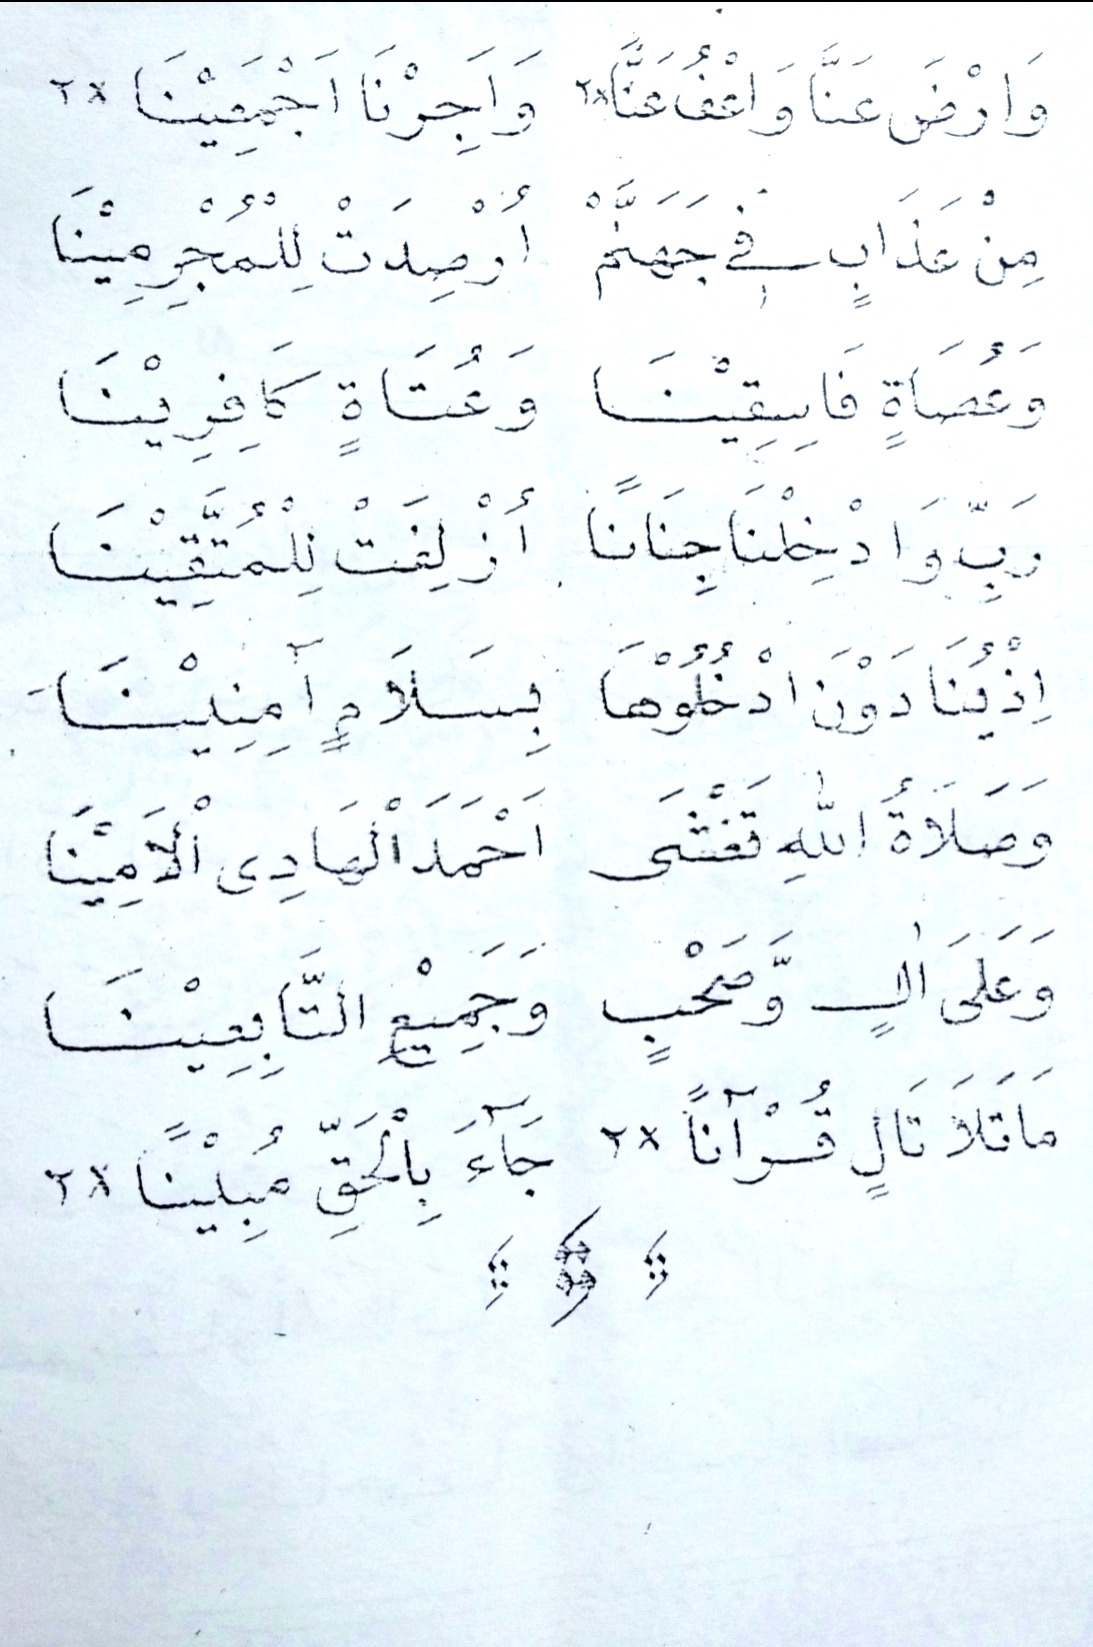 وَارْضَ عَنَّا وَاعْفُ عَنَّا ×٢ وَاَجِرْنَا اَجْمَعِيْنَا ×٢
مِنْ عَذَابٍ فِى جَهَنَّمْ اُرْصِدَتْ لِلْمُجْرِمِيْنَا
وَعُصَاةٍ فَاسِقِيْنَا وَعُتَاةٍ كَافِرِيْنَا
رَبِّ وَادْخِلْنَا جِنَانًا اُزْلِفَتْ لِلْمُتَّقِيْنَا
اِذْ يُنَادَوْنَ ادْخُلُوْهَا بِسَلَامٍ آمِنِيْنَا
وَصَلَاةُ اللّٰهِ تَغْشَى اَحْمَدَ الْهَادِى الْاَمِيْنَا
وَعَلَى اٰلٍ وَّصَحْبٍ وَجَمِيْعِ التَّابِعِيْنَا
مَاتَلَا تَالٍ قُرْآنًا ×٢ جَآءَ بِالْحَقِّ مُبِيْنًا ×٢